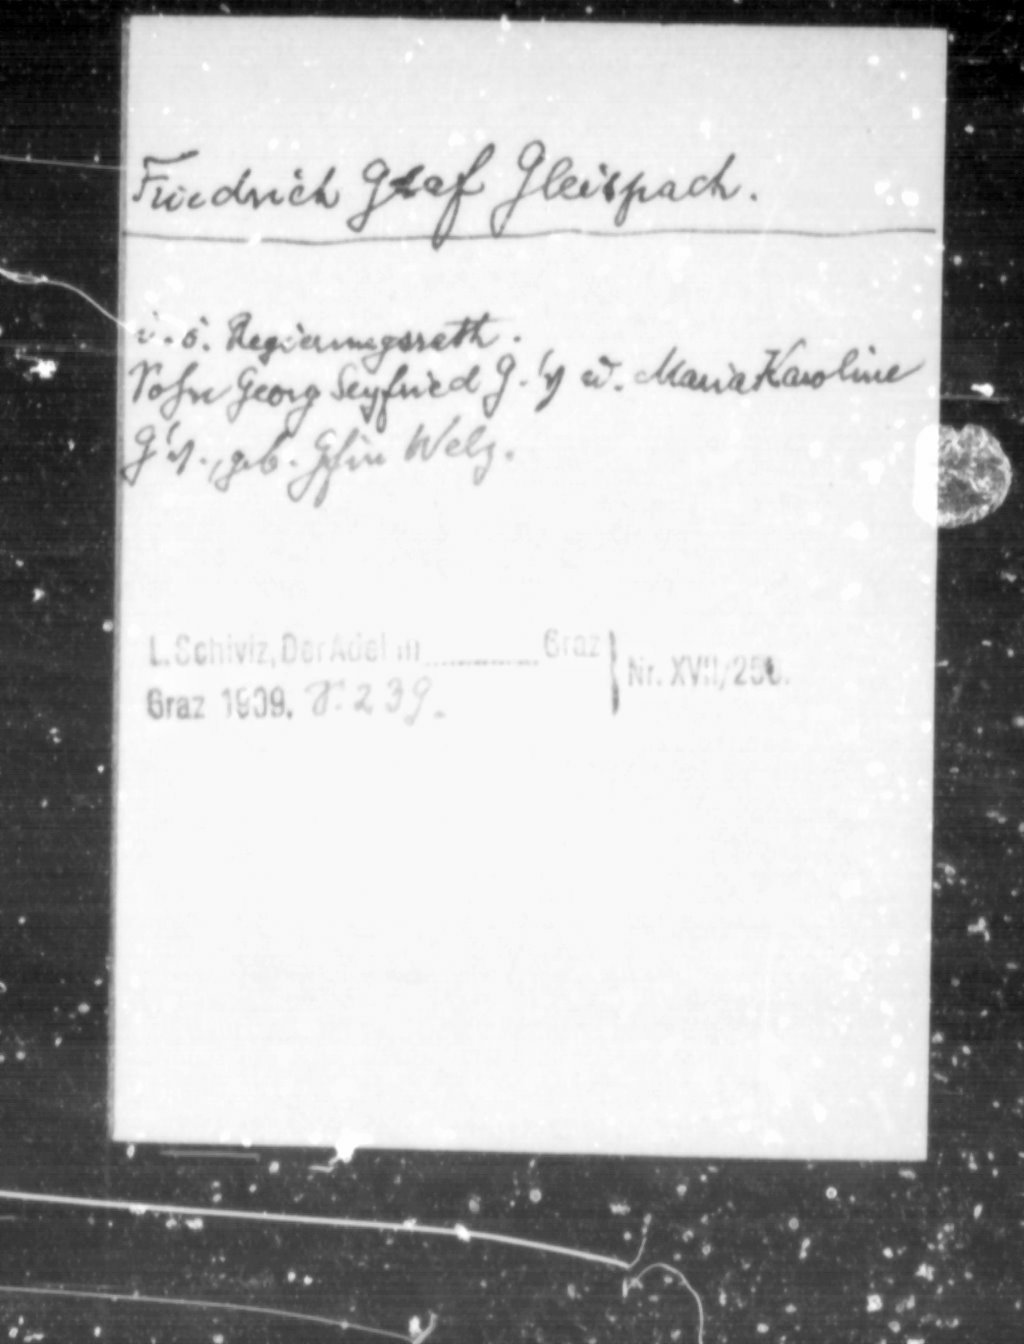 Friedrich Graf Gleispach.
i. ö. Regierungsrath.
Sohn Georg Seyfried G.'s u. Maria Karoline
G's., geb. Gfin Welz.
L. Schiviz, Der Adel in ............ Graz
Graz 1909. S. 239. } Nr. XVII/250.